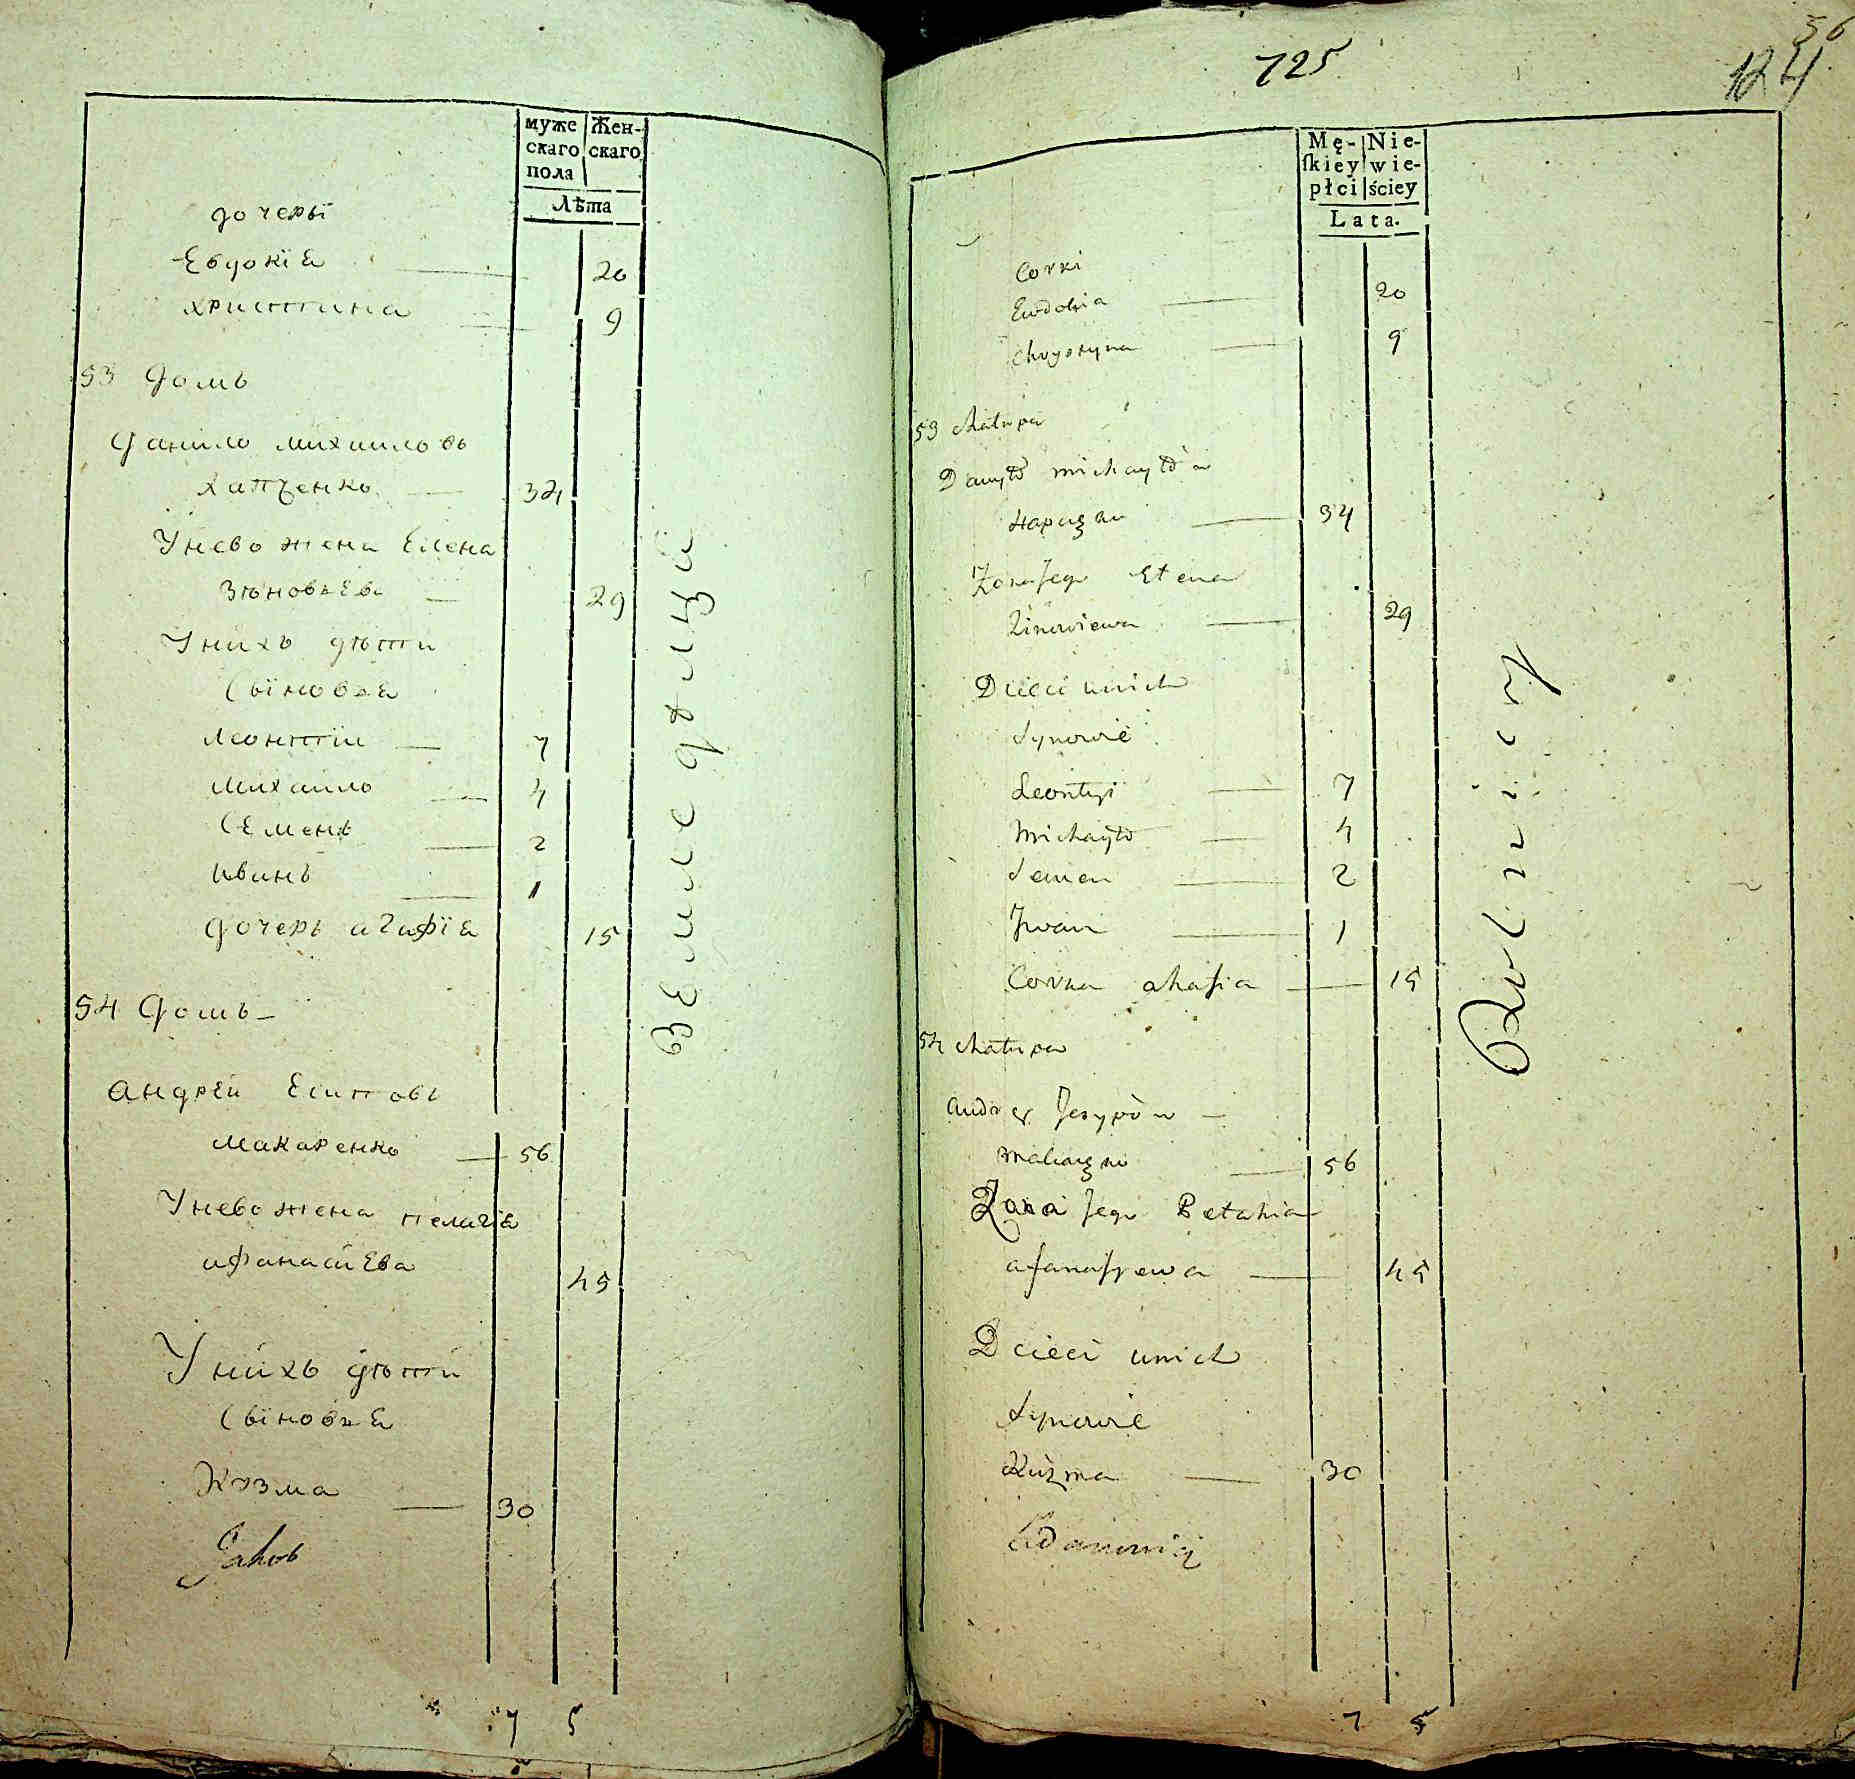 муже Жен-
скаго скаго
пола
Лѣта
дочеры
Евдокіа 20
христина 9
53 домъ
данило михаиловъ
хапченко 34
Унево жена Елена
зѣновьева 29
Унихъ дѣти
Сыновья
леонтіи 7
михаило 4
Семенъ 2
иванъ 1
дочерь агафіа 15
54 домъ
андрей Есиповъ
макаренко 56
Унево жена пелагіа
афанасіева 45
Унихъ дѣти
Сыновья
Козма 30
Jakob
7 5
Землѣдѣлцы
56
725
124
Mę- Nie-
ſkiey wie-
płci ściey
Lata.
Corki
Eudokia 20
Chrystyna 9
53 Chatupa
Danyło Michayłów
34
Zona Jego Elena
Zinowiewa 29
Dzieci unich
Synowie
Leontyi 7
Michayło 4
Semen 2
Jwan 1
Corka ahafia 15
54 Chatupa
andrey Jesypów
56
Zona Jego Petahia
afanasyewa 45
Dzieci unich
Synowie
Kuzma 30
7 5
Rolnicy